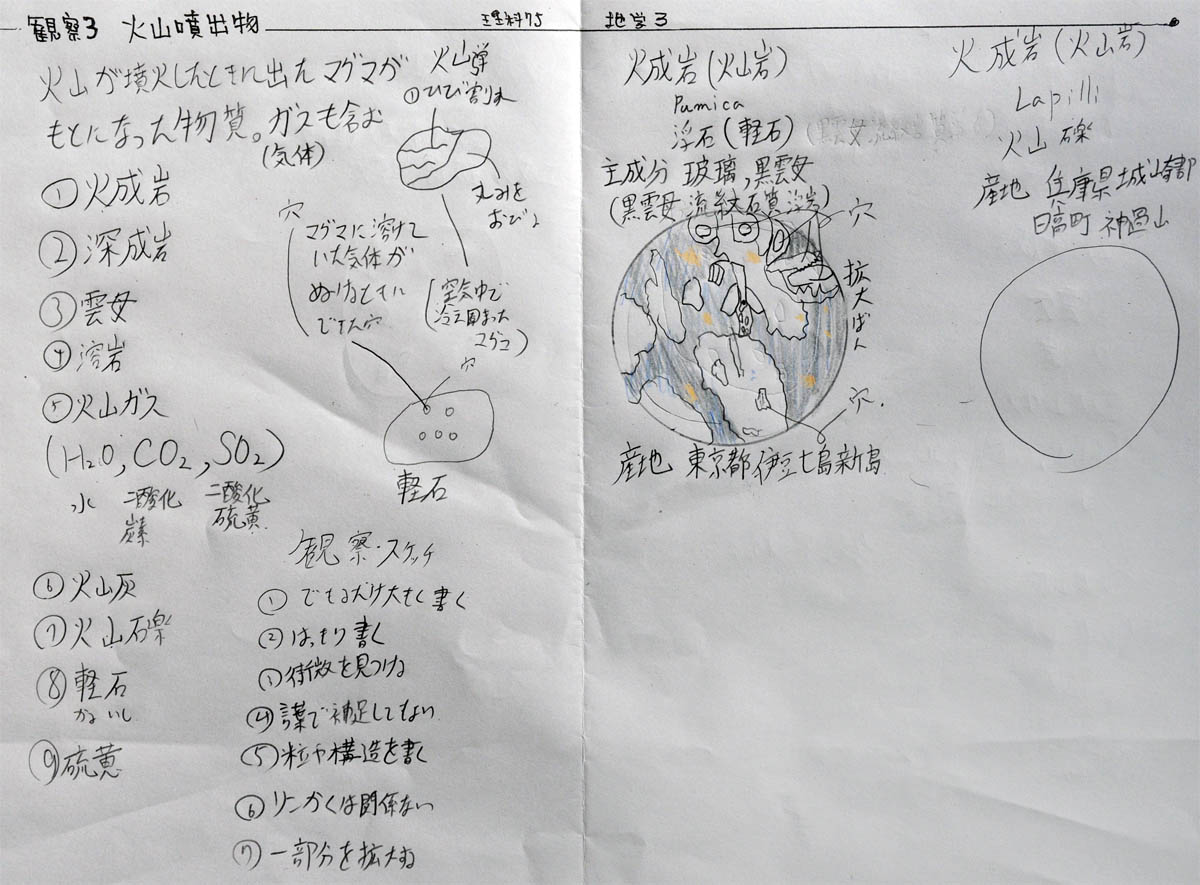 観察3 火山噴出物
理科75
地学3
火山が墳火したときに出たマグマが
もとになった物質。ガスも含む
(気体)
①火成岩
②深成岩
③雲母
④溶岩
⑤火山ガス
(H₂O, CO₂, SO₂)
水 二酸化炭素 二酸化硫黄
⑥火山灰
⑦火山礫
⑧軽石
かるいし
⑨硫黄
火山弾
①ひび割れ
丸みを
おびる
(空気中で
冷え固まった
マグマ)
穴
マグマに溶けて
いた気体が
ぬけるときに
できた穴
穴
軽石
観察・スケッチ
① できるだけ大きく書く
②はっきり書く
③特徴を見つける
④言葉で補足してもない
⑤粒や構造を書く
⑥リンかくは関係ない
⑦一部分を拡大する
火成岩(火山岩)
Pumica
浮石(軽石)
主成分 玻璃,黒雲母
(黒雲母流紋石質浮岩)
穴
拡大ばん
穴.
産地 東京都伊豆七島新島
火成岩(火山岩)
Lapilli
火山礫
産地 兵庫県城崎郡
日高町 神過山